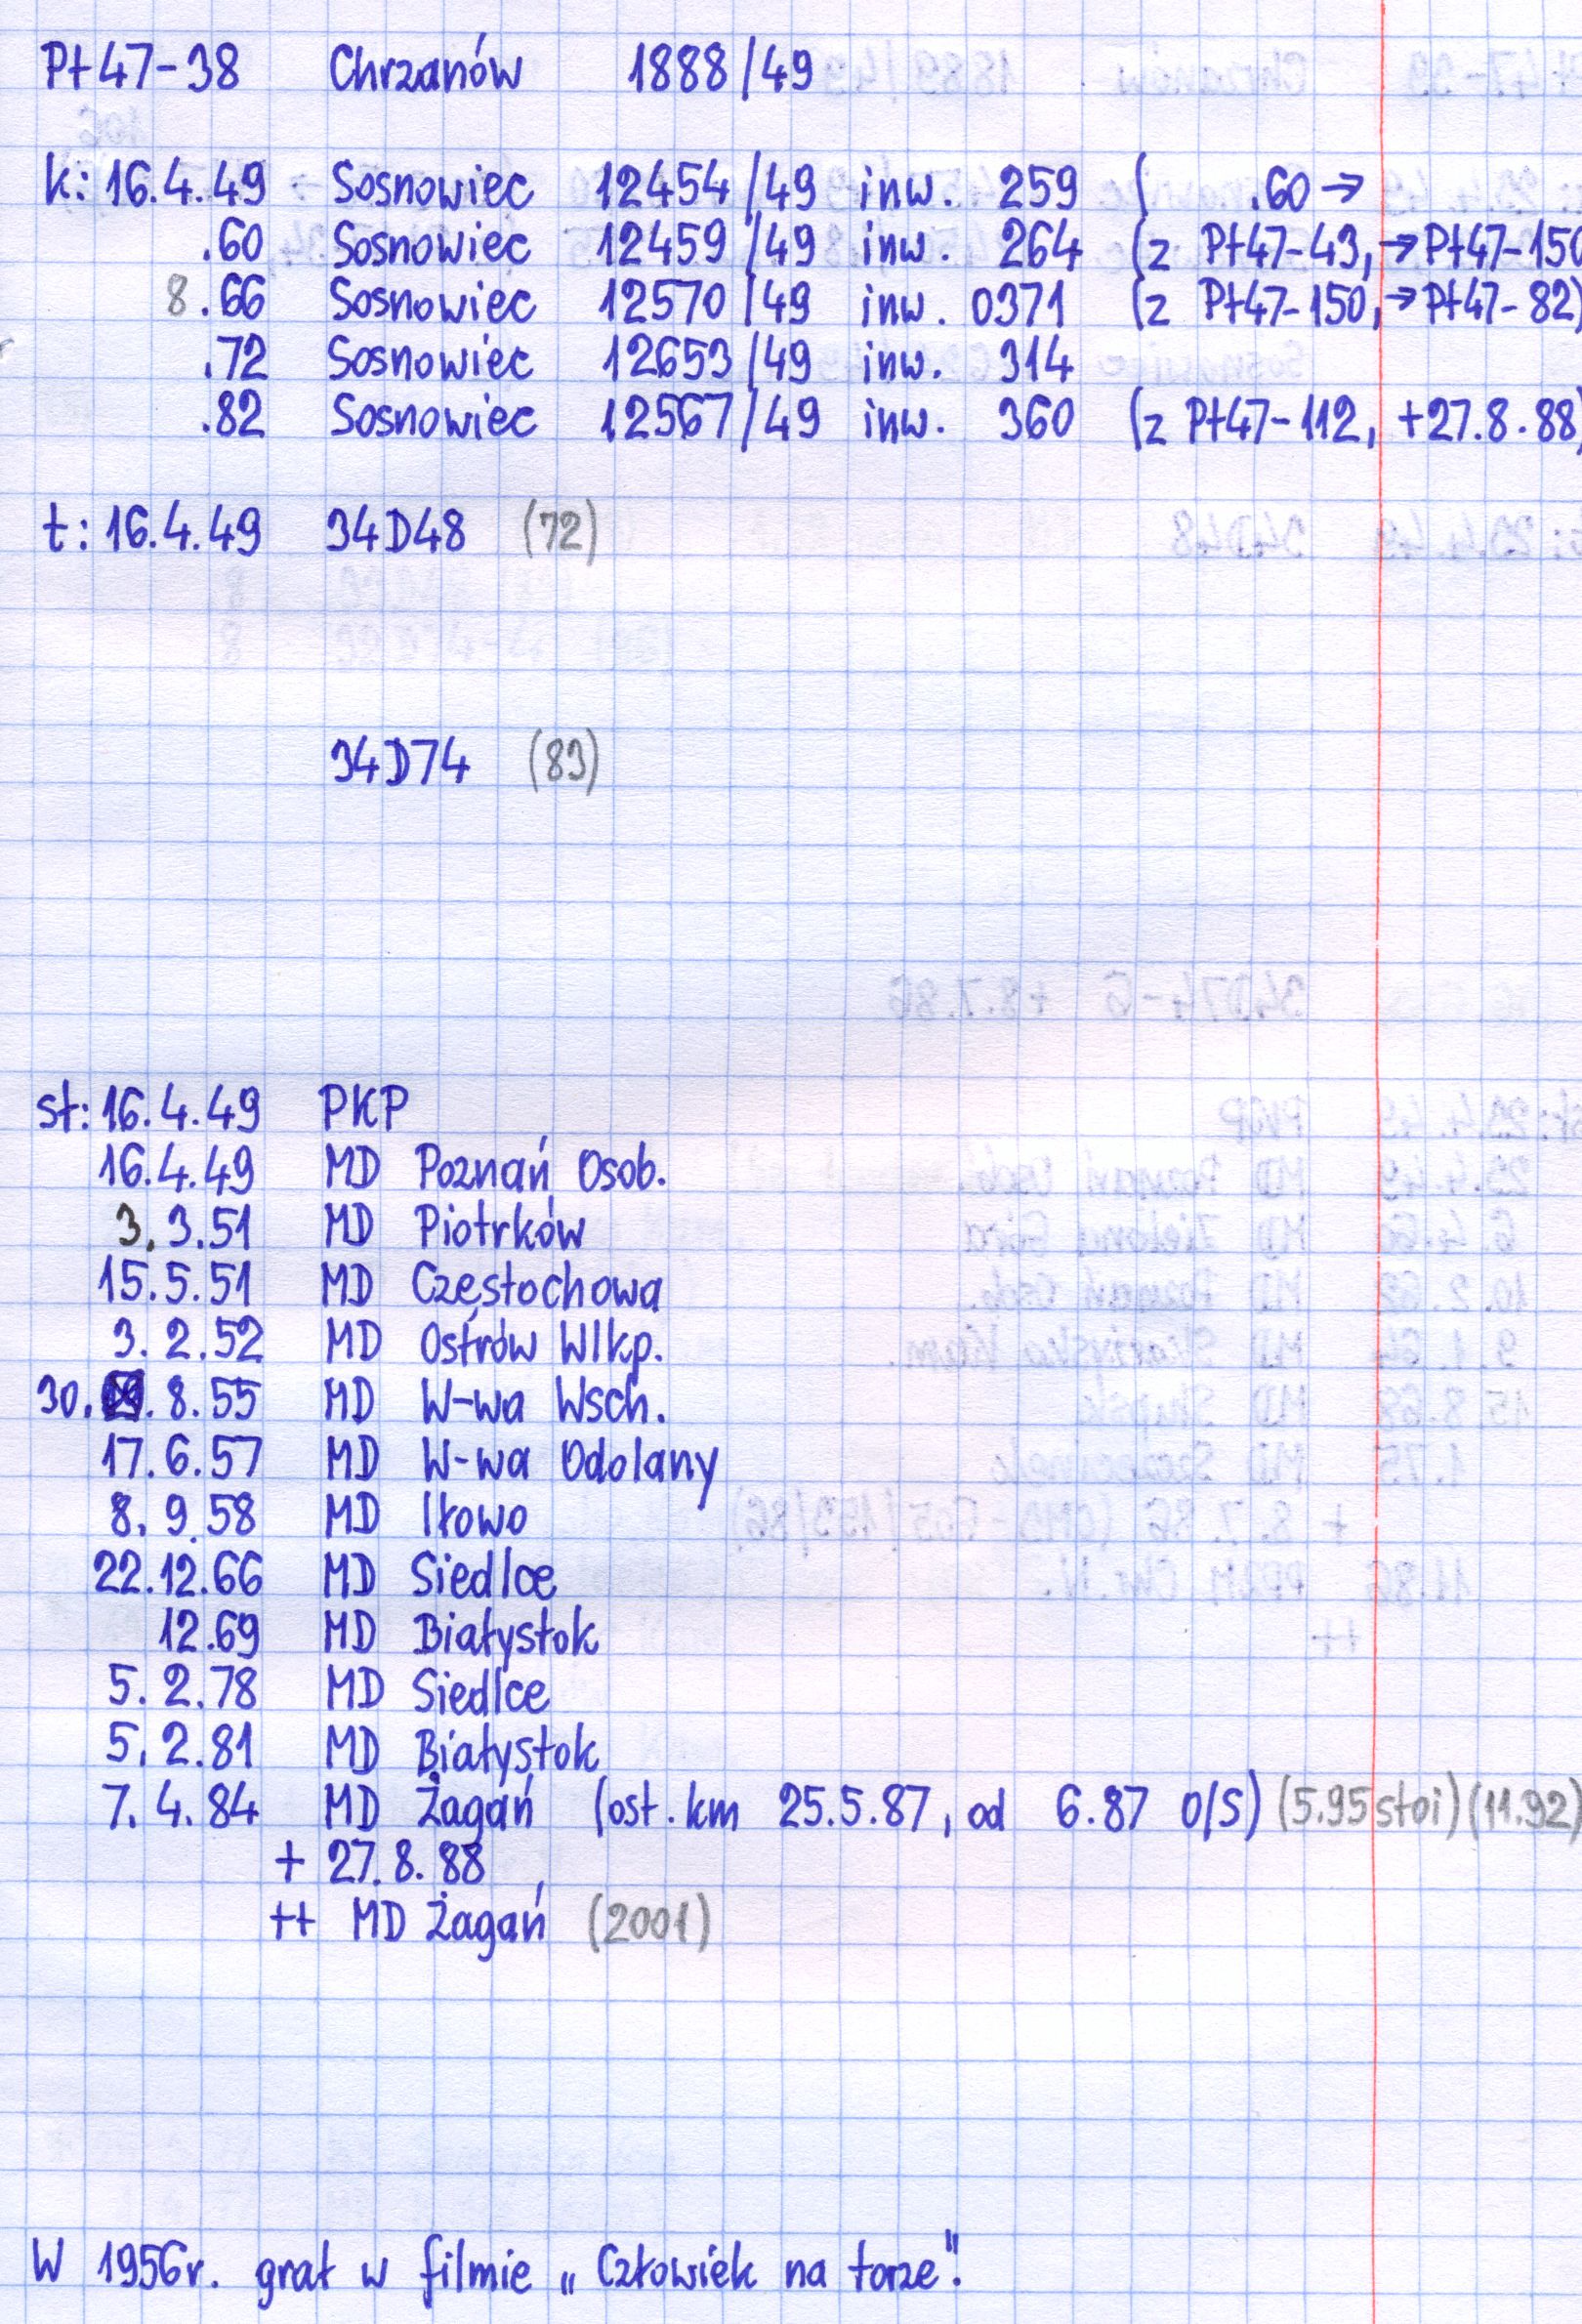 Pt47-38 Chrzanów 1888/49
k: 16.4.49 Sosnowiec 12454/49 inw. 259 ( .60→
.60 Sosnowiec 12459/49 inw. 264 (z Pt47-43, →Pt47-150
8.66 Sosnowiec 12570/49 inw. 0371 (z Pt47-150, →Pt47-82)
.72 Sosnowiec 12653/49 inw. 314
.82 Sosnowiec 12567/49 inw. 360 (z Pt47-112, +27.8.88)
t: 16.4.49 34D48 (72)
34D74 (83)
st: 16.4.49 PKP
16.4.49 MD Poznań Osob.
3.3.51 MD Piotrków
15.5.51 MD Częstochowa
3.2.52 MD Ostrów Wlkp.
30.8.55 MD W-wa Wsch.
17.6.57 MD W-wa Odolany
8.9.58 MD Iłowo
22.12.66 MD Siedlce
12.69 MD Białystok
5.2.78 MD Siedlce
5.2.81 MD Białystok
7.4.84 MD Żagań (ost. km 25.5.87, od 6.87 O/S) (5.95 stoi) (11.92)
+ 27.8.88
++ MD Żagań (2001)
W 1956r. grał w filmie „Człowiek na torze".